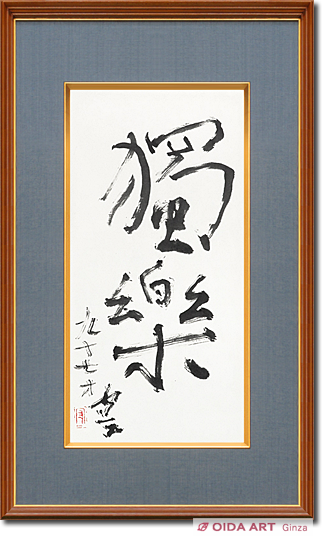 獨
樂
九十七才
OIDA ART Ginza